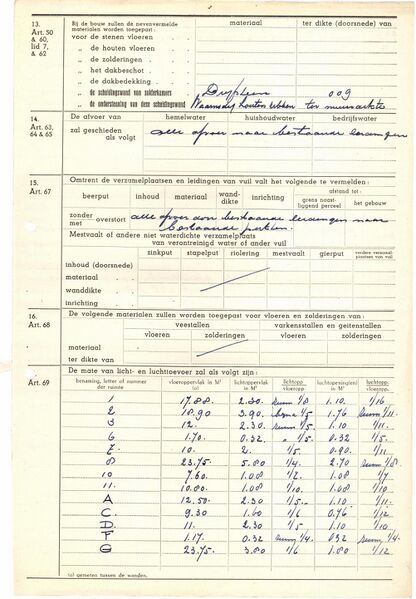 13.
Art. 50
& 60,
lid 7,
& 62
Bij de bouw zullen de nevenvermelde
materialen worden toegepast:
materiaal
ter dikte (doorsnede) van
voor de stenen vloeren :
„ de houten vloeren
„ de zolderingen
„ het dakbeschot
„ de dakbedekking
„ de scheidingswand van zolderkamers
009
„ de ondersteuning van deze scheidingswand
14.
Art. 63,
64 & 65
De afvoer van
hemelwater
huishoudwater
bedrijfswater
zal geschieden
als volgt
alle afvoer naar bestaande leidingen
15.
Art. 67
Omtrent de verzamelplaatsen en leidingen van vuil valt het volgende te vermelden :
beerput
inhoud
materiaal
wand-
dikte
inrichting
afstand tot :
grens naast-
liggend perceel
het gebouw
zonder
met
overstort
alle afvoer door bestaande leidingen naar
bestaande putten.
Mestvaalt of andere niet waterdichte verzamelplaats
van verontreinigd water of ander vuil
zinkput
stapelput
riolering
mestvaalt
gierput
verdere verzamel-
plaatsen van vuil
inhoud (doorsnede)
materiaal
wanddikte
inrichting
16.
Art. 68
De volgende materialen zullen worden toegepast voor vloeren en zolderingen van :
veestallen
varkensstallen en geitenstallen
vloeren
zolderingen
vloeren
zolderingen
materiaal
ter dikte van
Art. 69
De mate van licht- en luchttoevoer zal als volgt zijn :
benaming, letter of nummer
der ruimte
vloeroppervlak in M²
(a)
lichtoppervlak
in M²
lichtopp.
vloeropp.
luchtopening(en)
in M²
luchtopp.
vloeropp.
1 17.88 2.30 1/8 1.10 1/16
2 18.90 3.90 1/5 1.76 1/11
3 12. 2.30 1/5 1.10 1/11
6 1.70 0.32 1/5 0.32 1/5
7 10 2. 1/5 0.90 1/11
8 23.75 5.80 1/4 2.70 1/8
10 7.60 1.08 1/7 1.08 1/7
11. 10.00 1.08 1/10 1.08 1/10
A 12.50 2.30 1/5 1.10 1/11
C. 9.30 1.60 1/6 0.76 1/12
D. 11. 2.30 1/5 1.10 1/10
F 1.17 0.32 1/4 0.32 1/4
G 23.75 3.80 1/6 1.80 1/12
(a) gemeten tussen de wanden.